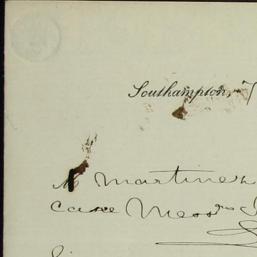 Southampton, 7
M Martinez
Care Mess